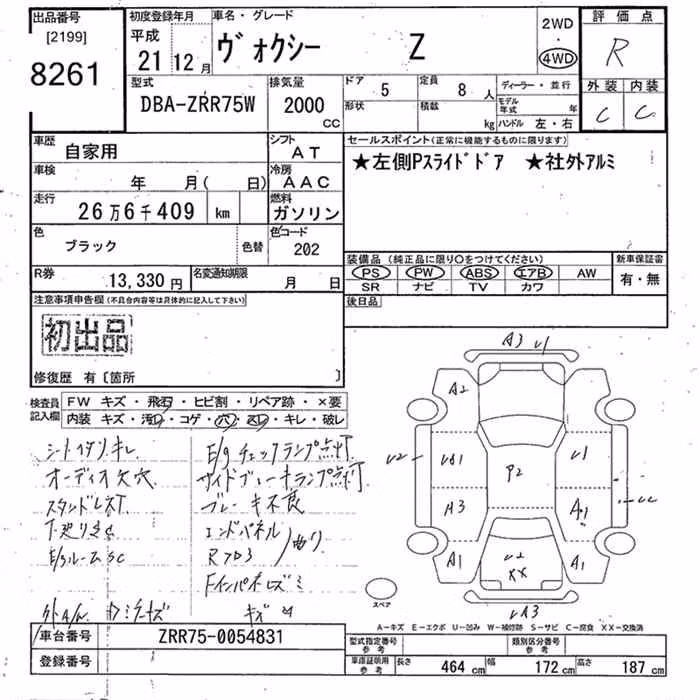 出品番号
[2199]
8261
初度登録年月
平成
21 12 月
車名・グレード
ヴォクシー Z
2WD
・
4WD
評価点
R
外装 内装
C C
型式
DBA-ZRR75W
排気量
2000
CC
ドア 5
定員 8 人
形状
積載
kg
ディーラー・並行
モデル年式 年
ハンドル 左・右
車歴 自家用
シフト AT
車検 年 月( 日)
冷房 AAC
走行 26万6千409 km
燃料 ガソリン
色 ブラック
色替
色コード 202
R券 13,330円
名変通知期限 月 日
セールスポイント(正常に機能するものに限ります)
★左側Pスライドドア ★社外アルミ
装備品(純正品に限り○をつけてください)
PS PW ABS エアB AW
SR ナビ TV カワ
新車保証書
有・無
後日品
注意事項申告欄(不具合内容等は具体的に記入して下さい)
初出品
修復歴 有〔箇所 〕
検査員記入欄
FW キズ・飛石・ヒビ割・リペア跡・×要
内装 キズ・汚レ・コゲ・穴・スレ・キレ・破レ
オーディオ欠穴
E/gチェックランプ点灯
サイドブレーキランプ点灯
ブレーキ不良
エンドパネル
曲り
E/gルームSC
キズ
A3 U1
A2
U2
UB1
U1
P2
A3
A1
A1
U2
XX
A1
UA3
スペア
A-キズ E-エクボ U-凹み W-補修跡 S-サビ C-腐食 XX-交換済
車台番号 ZRR75-0054831
登録番号
型式指定番号
参考
類別区分番号
参考
車庫証明用
参考
長さ 464 cm
幅 172 cm
高さ 187 cm